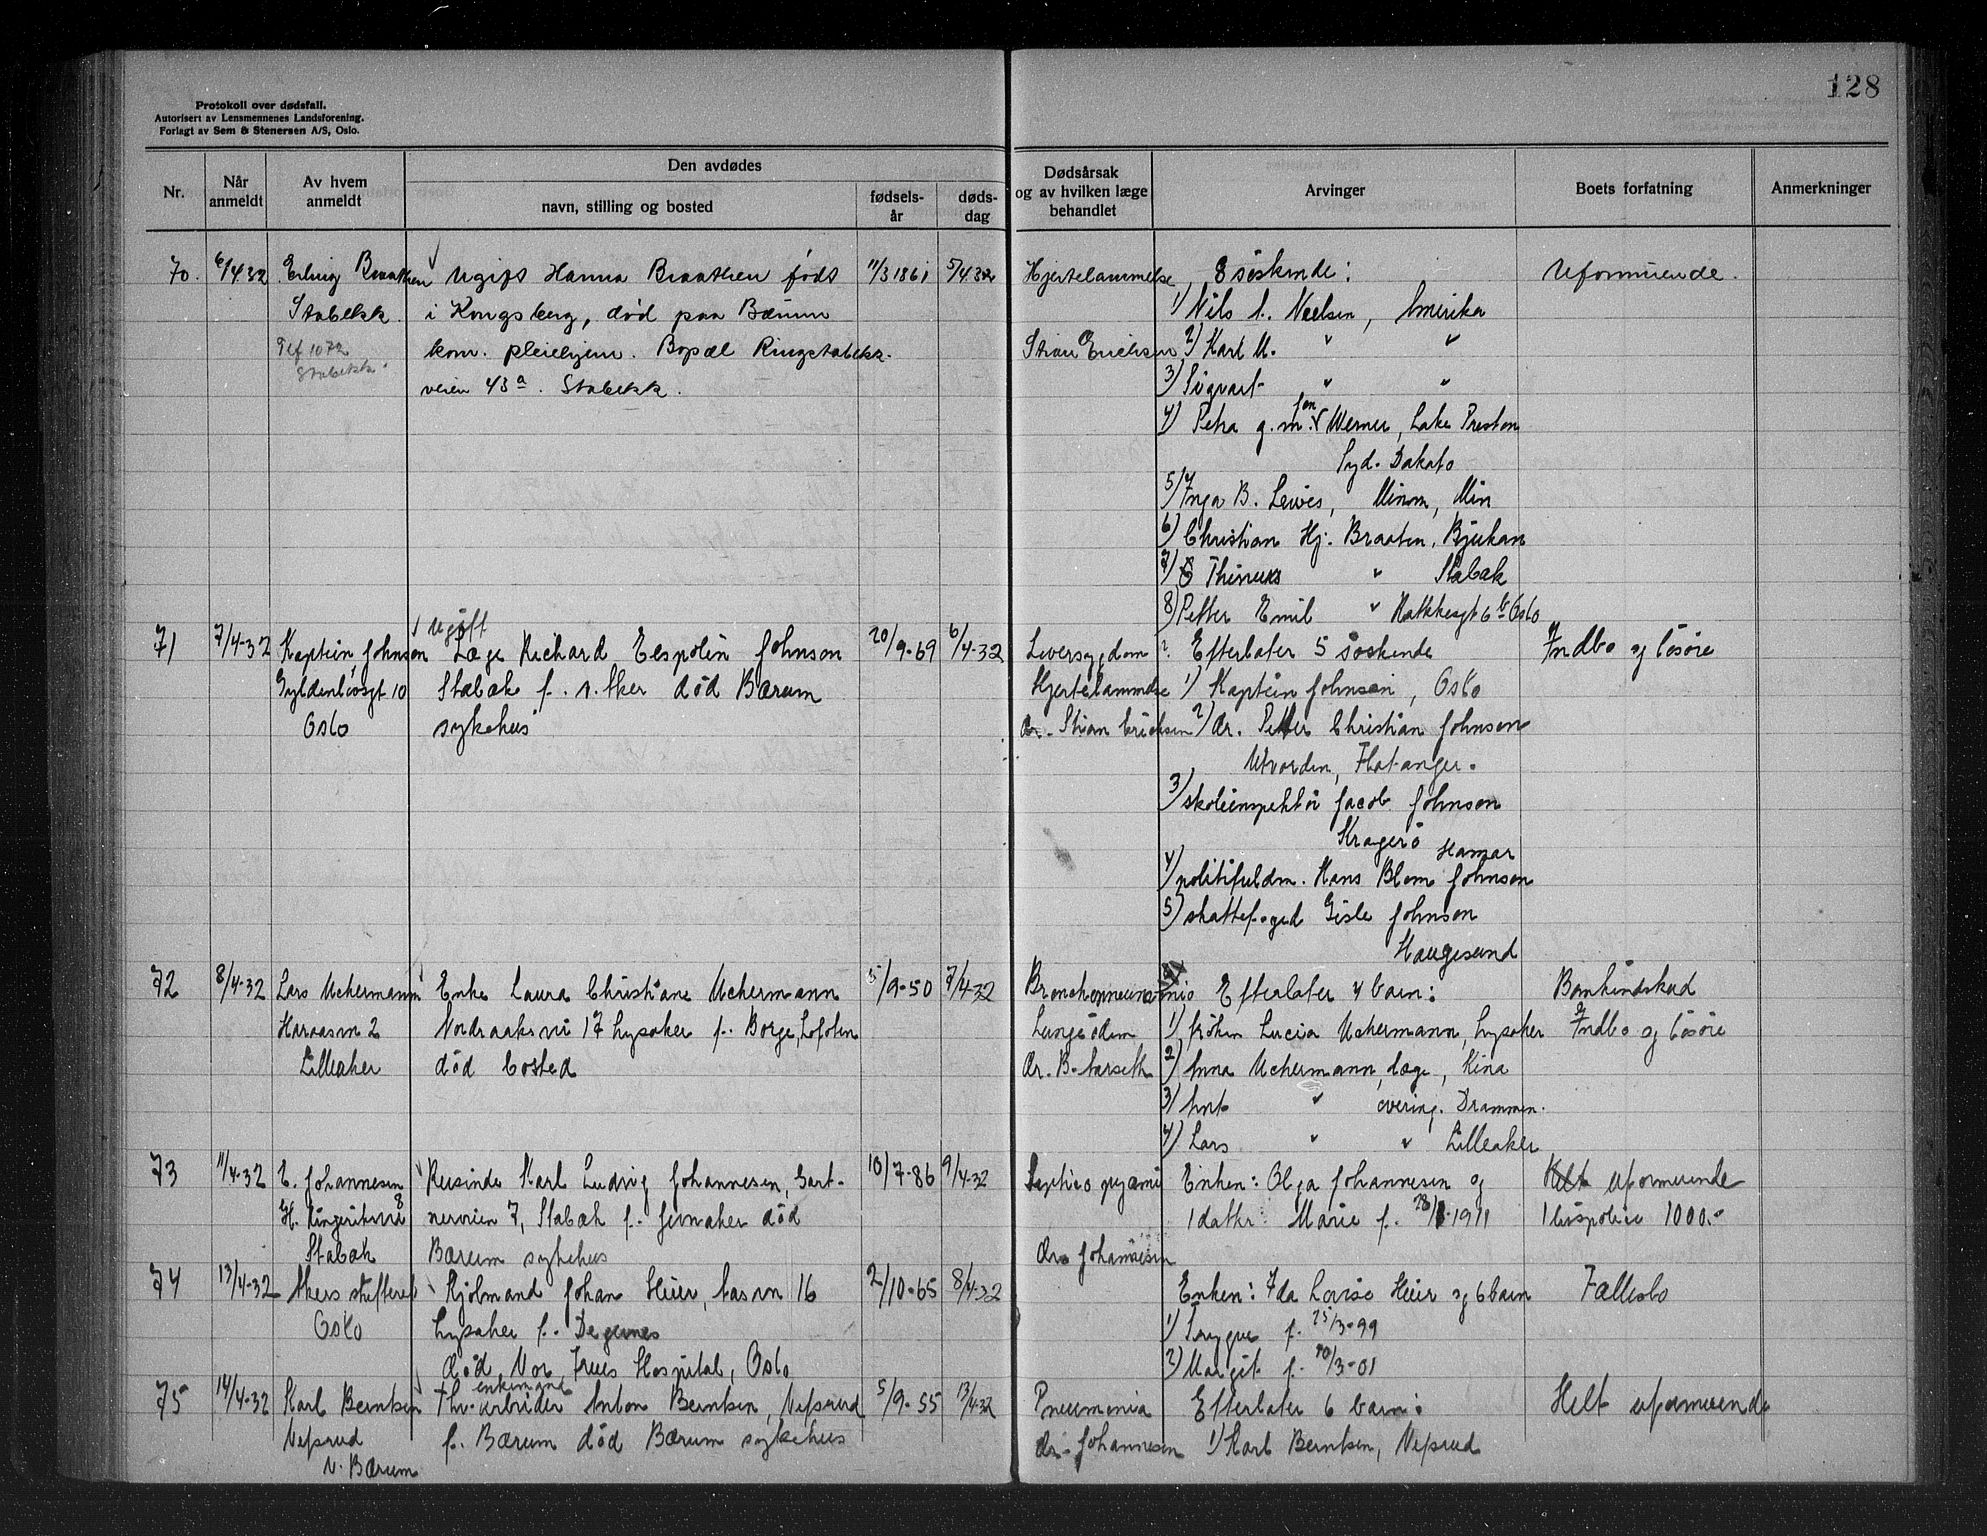 128
Protokoll over dødsfall.
Autorisert av Lensmennenes Landsforening.
Forlagt av Sem & Stenersen A/S, Oslo.
Nr.
Når anmeldt
Av hvem anmeldt
Den avdødes
navn, stilling og bosted
fødselsår
dødsdag
Dødsårsak og av hvilken læge behandlet
Arvinger
Boets forfatning
Anmerkninger
70. 6/4 32 Erling Braathen Ugift Hanna Braathen født 11/3 1861 5/4 32 Hjertelammelse 8 søskende: Uformuende.
Stabekk. i Kongsberg, død paa Bærum 1) Nils A. Neelsen, Amerika
Tlf 1072 kom. pleiehjem. Bopæl Ringstabekk- Stian Erichsen 2) Karl M. " "
Stabekk veien 43a. Stabekk. 3) Sigvart " "
4) Petra g.m. Werner, Lake Preston
Syd. Dakato
5) Inga B. Lewes, Minm, Min
6) Christian Hj. Braaten, Rjukan
7) Thinus " Stabæk
8) Petter Emil " Kakkegt 6b Oslo
71 7/4-32 Kaptein Johnson ugift Læge Richard Eespolin Johnson 20/9-69 6/4-32 Leversygdom ?. Efterlater 5 søskende Indbo og løsøre
Gyldenløvsgt 10 Stabæk f. v. Aker død Bærum Hjertelammelse 1) Kaptein Johnson, Oslo
Oslo sykehus dr. Stian Erichsen 2) dr. Petter Christian Johnson
Utvorden, Flatanger.
3) skoleinspektør Jacob Johnson
Kragerø
Hamar
4) politifuldm. Hans Blom Johnson
5) skattefoged Gisle Johnson
Haugesund
72 8/4-32 Lars Uchermann Enke Laura Christiane Uchermann 5/9-50 7/4-32 Bronchopneumonio Efterlater 4 barn: Bankindskud
Haraasvn 2 Nordraaksvei 17 Lysaker f. Borge, Lofoten Lungeødem 1) frøken Lucia Uchermann, Lysaker Indbo og løsøre
Lilleaker død bosted dr. B. Aarseth 2) Anna Uchermann, læge, Kina
3) Arnt " overing. Drammen.
4) Lars " " Lilleaker
73 11/4-32 E. Johannesen Reisende Karl Ludvig Johannesen, Gart- 10/7-86 9/4-32 Septico pyæmi Enken: Olga Johannesen og Helt uformuende
H. Ringeriksvei 8 nerveien 7, Stabæk f. Jevnaker død 1 datter: Marie f. 1911 1 livspolice 1000.-
Stabæk Bærum sykehus dr. Johannesen
74 13/4-32 Akers skifterett Kjølmand Johan Heier, Aasvn 16 2/10-65 8/4-32 Enken: Ida Lovise Heier og 6 barn Fællesbo
Oslo Lysaker f. Degernes 1) Trygve f. 25/3-99
død Vor Frues Hospital, Oslo 2) Margit f. 10/3-01
75 14/4-32 Karl Berntsen enkemand Fhv. arbeider Anton Berntsen, Vefsrud 5/9-55 13/4-32 Pneumonia Efterlater 6 barn: Helt uformuende
Vefsrud f. Bærum død Bærum sykehus dr. Johannesen 1) Karl Berntsen, Vefsrud
v. Bærum